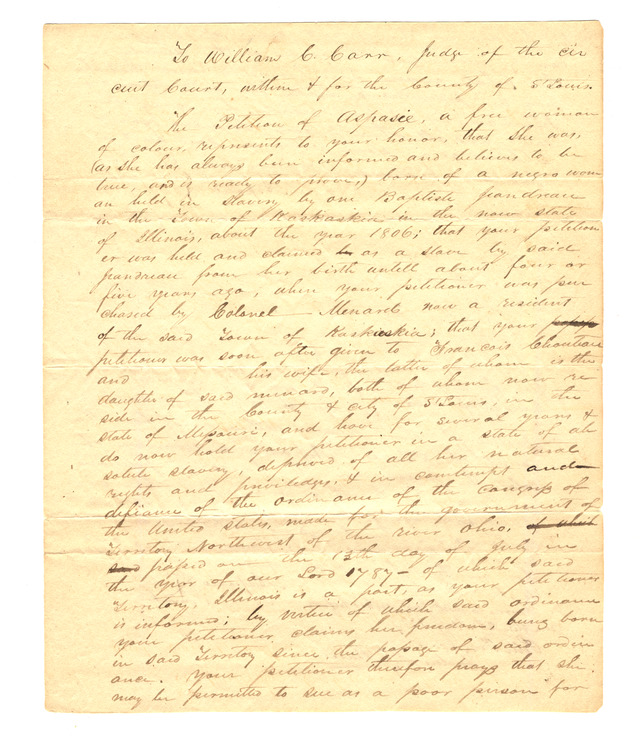 To William C. Carr, Judge of the cir
cuit Court, within & for the County of St Louis.
The Petition of Aspasie, a free woman
of colour, represents to your honor, that she was,
(as she has always been informed and believes to be
true, and is ready to prove,) born of a negro wom
an held in slavery by one Baptiste Jeandreau
in the Town of Kaskaskia in the now state
of Illinois, about the year 1806; that your petition
er was held and claimed as a slave by said
Jeandreau from her birth untill about four or
five years ago, when your petitioner was pur
chased by Colonel Menard now a resident
of the said Town of Kaskaskia; that your
petitioner was soon after given to Francois Chouteau
and his wife, the latter of whom is the
daughter of said menard, both of whom now re
side in the County & city of St Louis, in the
state of Missouri, and have for several years &
do now hold your petitioner in a state of ab
solute slavery, deprived of all her natural
rights and priviledges, & in contempt and
defiance of the ordinance of the congress of
the United states, made for the government of
Territory Northwest of the river Ohio, of which
said passed on the 13th day of July in
the year of our Lord 1787 - of which said
Territory, Illinois is a part, as your petitioner
is informed; by virtue of which said ordinance
your petitioner claims her freedom, being born
in said Territory since the passage of said ordin
ance. Your petitioner therefore prays that she
may be permitted to sue as a poor person for